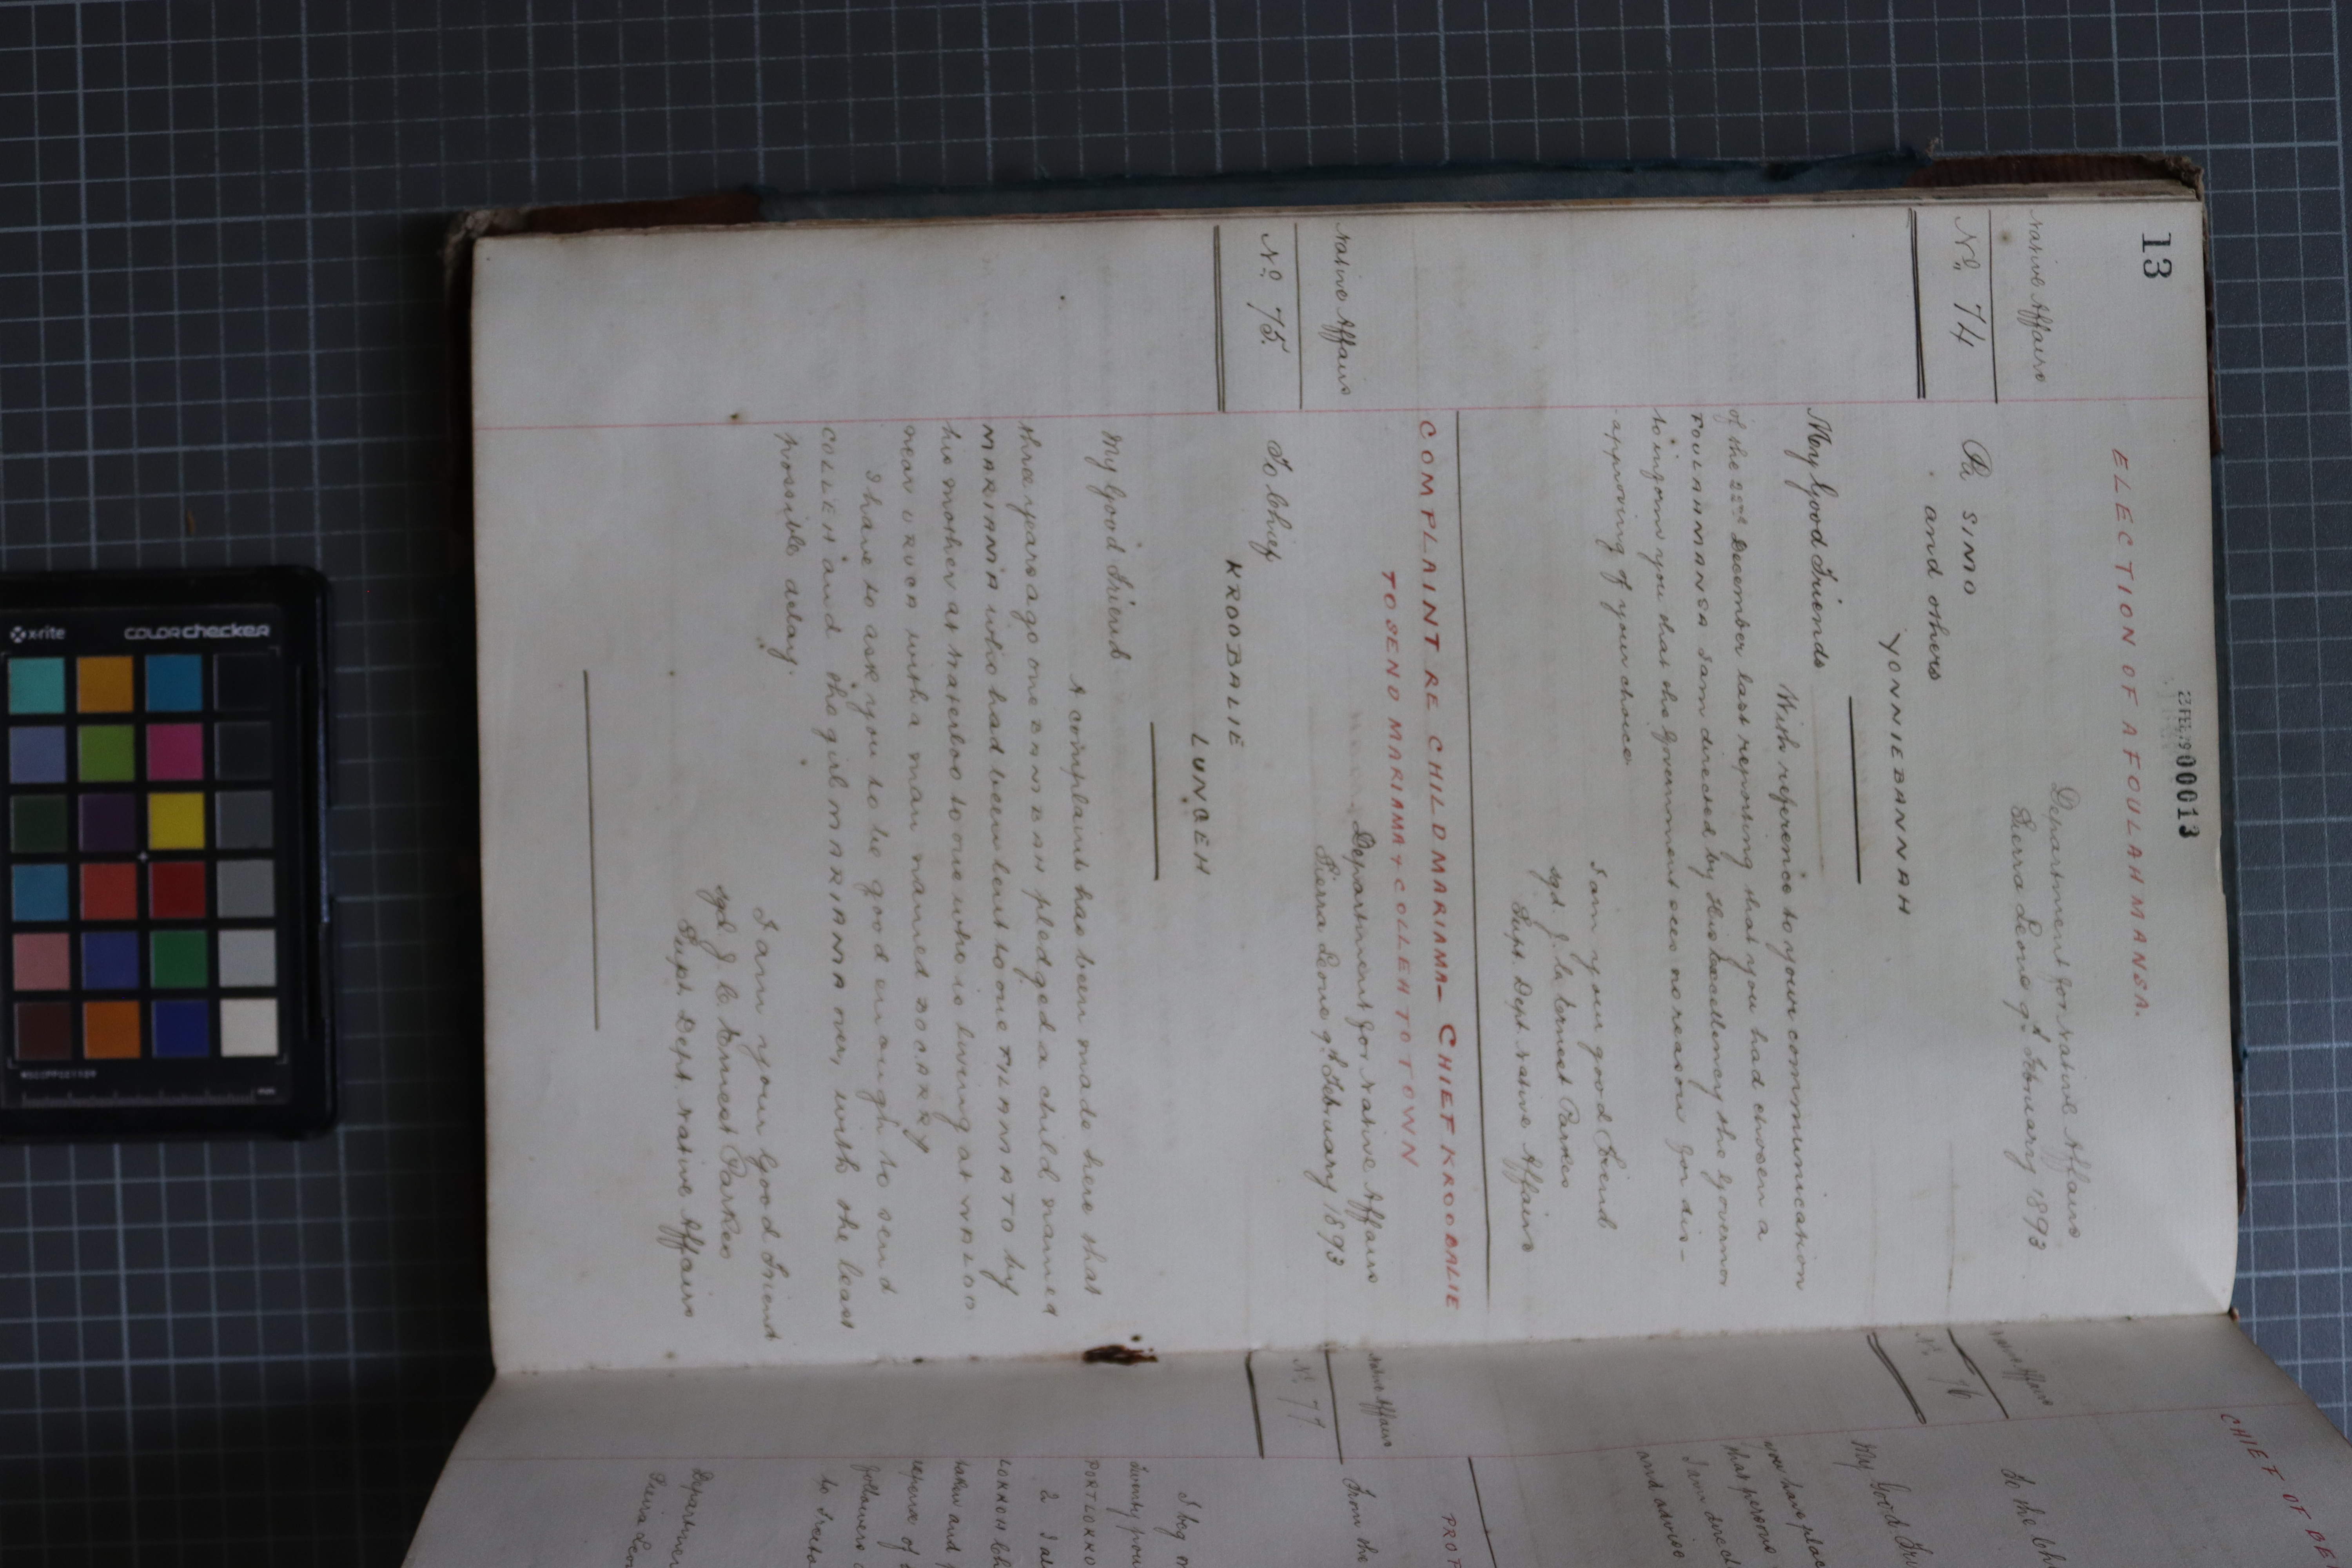 13
23 FEB. 19 00013
ELECTION OF A FOULAHMANSA.
Native Affairs
Department for Native Affairs
Sierra Leone 9th February 1893
No. 74
Pa SIMO
and others
YONNIEBANNAH
My Good Friends
With reference to your communication
of the 22nd December last reporting that you had chosen a
FOULAHMANSA I am directed by His Excellency the Governor
to inform you that the Government sees no reason for dis-
approving of your choice.
I am your good Friend
sgd. J. C. Ernest Parkes
Supt. Dept. Native Affairs
COMPLAINT RE CHILD MARIAMA- CHIEF KROOBALIE
TO SEND MARIAMA & COLLEH TO TOWN
Native Affairs
Department for Native Affairs
Sierra Leone 9th February 1893
No. 75.
To Chief
KROOBALIE
LUNGEH
My Good Friend
A complaint has been made here that
three years ago one pledged a child named
MARIAMA who had been lent to one by
his mother at Waterloo to one who is living at
near with a man named
I have to ask you to be good enough to send
COLLEH and the girl MARIAMA over, with the least
possible delay.
I am your Good Friend
sgd J. C. Ernest Parkes
Supt. Dept. Native Affairs
CHIEF OF
Native Affairs
No. 76
To the
My Good
you have
that person
I am
and advise
PROP
Native Affairs
No. 77
From the
I beg
Twenty
PORTLOKKO
2 I
LOKKOH
taken and
followers
to
Departmen
Sierra Leo
x-rite
colorchecker